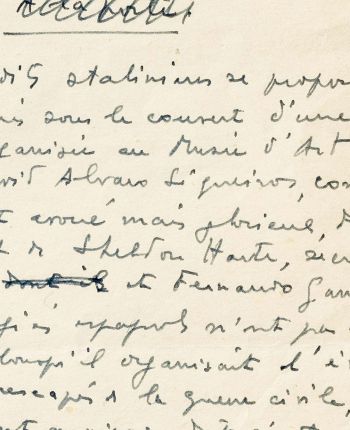 dits staliniens se propo
és sous le couvert d'une
ganisée au Musée d'Art
vid Alvaro Siqueiros, co
t avoué mais glorieux, d
t de Sheldon Harte, secr
et Fernando Gam
giés espagnols n'ont pas
lorsqu'il organisait l'é
rescapés de la guerre civile,